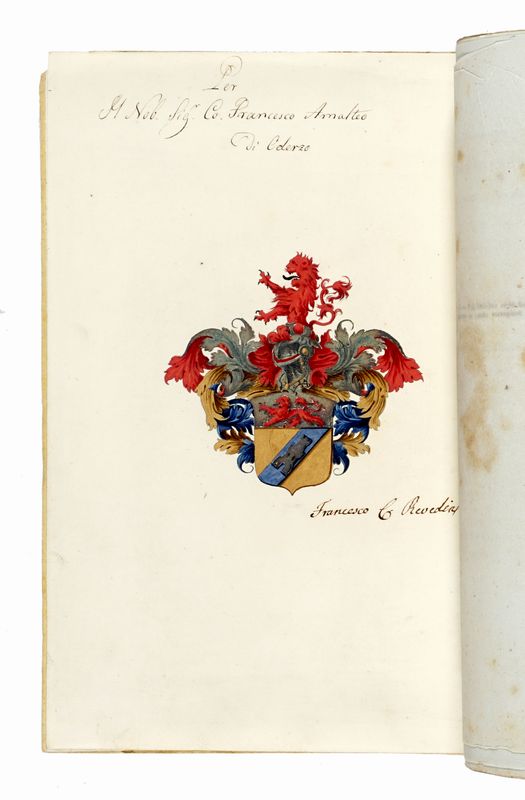 Per
Il Nob. Sigr. Co. Francesco Amalteo
Di Oderzo
Francesco Co. Revedin